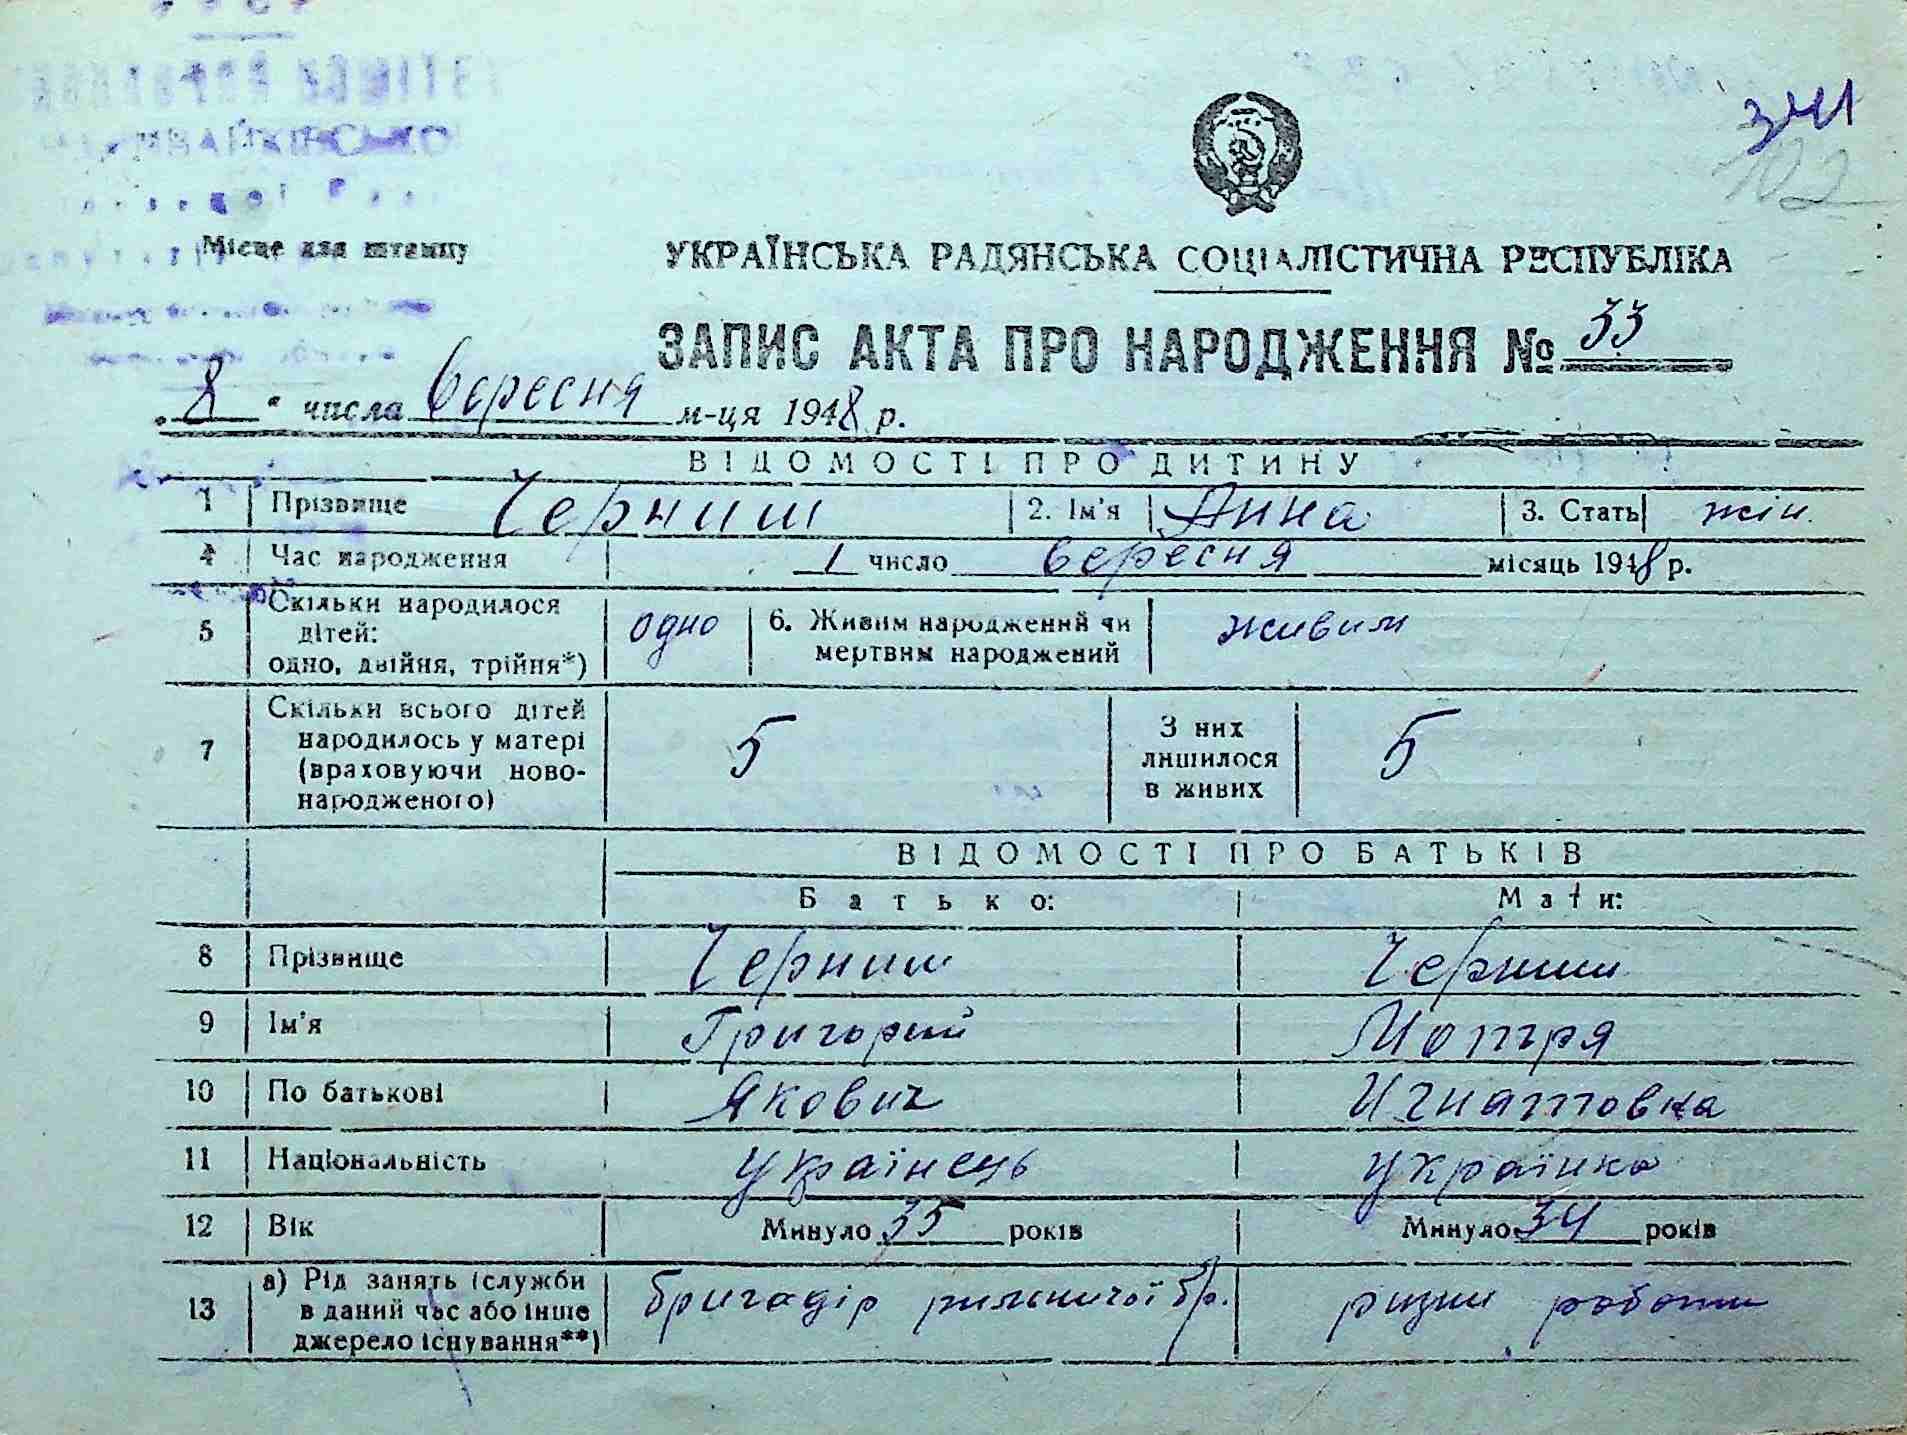 341
102
Місце для штампу
УКРАЇНСЬКА РАДЯНСЬКА СОЦІАЛІСТИЧНА РЕСПУБЛІКА
ЗАПИС АКТА ПРО НАРОДЖЕННЯ № 33
„8“ числа вересня м-ця 1948 р.
ВІДОМОСТІ ПРО ДИТИНУ
1 Прізвище Черниш 2. Ім'я Анна 3. Стать жін.
4 Час народження 1 число вересня місяць 1948 р.
5 Скільки народилося дітей: одно, двійня, трійня*) одно 6. Живим народжений чи мертвим народжений живим
7 Скільки всього дітей народилось у матері (враховуючи ново-народженого) 5 З них лишилося в живих 5
ВІДОМОСТІ ПРО БАТЬКІВ
Батько: Мати:
8 Прізвище Черниш Черниш
9 Ім'я Григорий Мотря
10 По батькові Якович Игнатовна
11 Національність українець українка
12 Вік Минуло 35 років Минуло 34 років
13 а) Рід занять (служби в даний час або інше джерело існування**) бригадір рильничої бр. ризни роботи